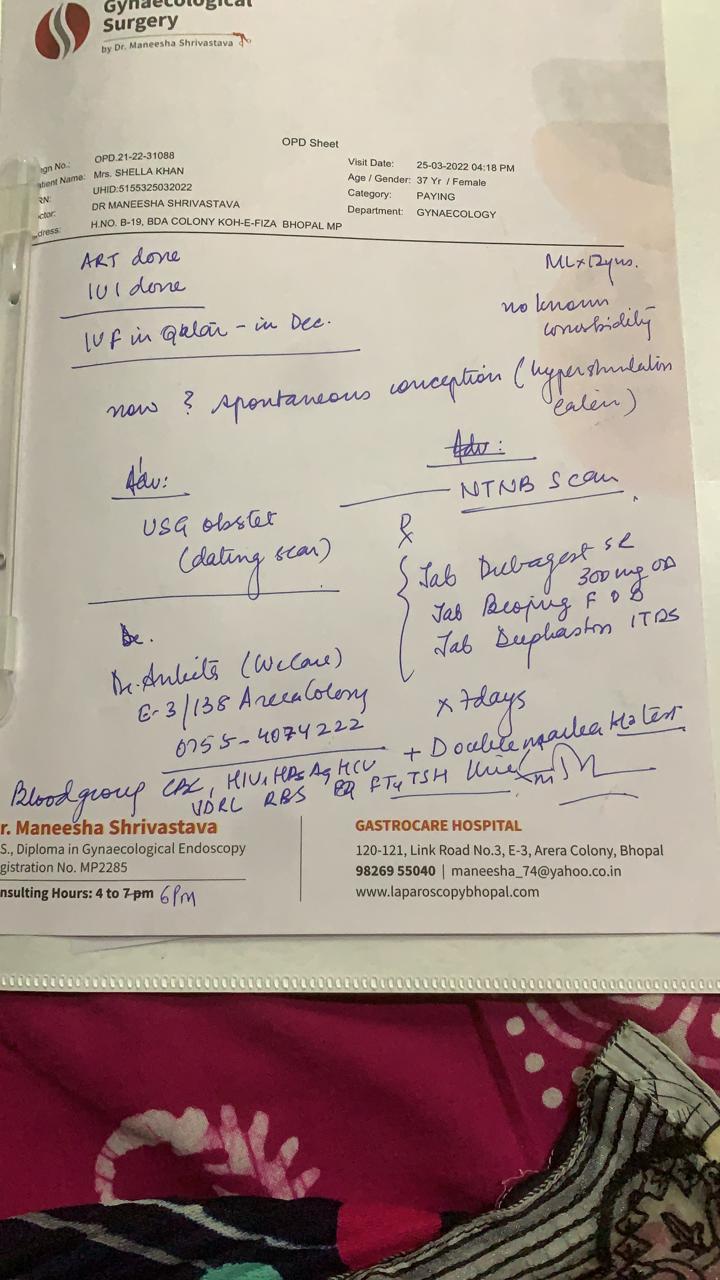 Gynaecological
Surgery
by Dr. Maneesha Shrivastava
OPD Sheet
gn No.: OPD.21-22-31088
atient Name: Mrs. SHELLA KHAN
RN: UHID:5155325032022
ctor: DR MANEESHA SHRIVASTAVA
dress: H.NO. B-19, BDA COLONY KOH-E-FIZA BHOPAL MP
Visit Date: 25-03-2022 04:18 PM
Age / Gender: 37 Yr / Female
Category: PAYING
Department: GYNAECOLOGY
ART done
IUI done
ML x 12yrs.
no known
comorbidity
IVF in Qatar - in Dec.
now ? spontaneous conception (hyperstimulation
Adv:
USG obstet
(dating scan)
Adv:
NTNB Scan
Rx
Tab Dubagest SR
300mg OD
Tab F OD
Tab Duphaston 1TDS
x 7days
+ Double marker test
Dr.
Dr. Ankita (WeCare)
E-3/138 Arera Colony
0755-4074222
Blood group CBC, HIV, HBsAg HCV
VDRL RBS FT4 TSH Urine
r. Maneesha Shrivastava
S., Diploma in Gynaecological Endoscopy
gistration No. MP2285
nsulting Hours: 4 to 7 pm 6PM
GASTROCARE HOSPITAL
120-121, Link Road No.3, E-3, Arera Colony, Bhopal
98269 55040 | maneesha_74@yahoo.co.in
www.laparoscopybhopal.com